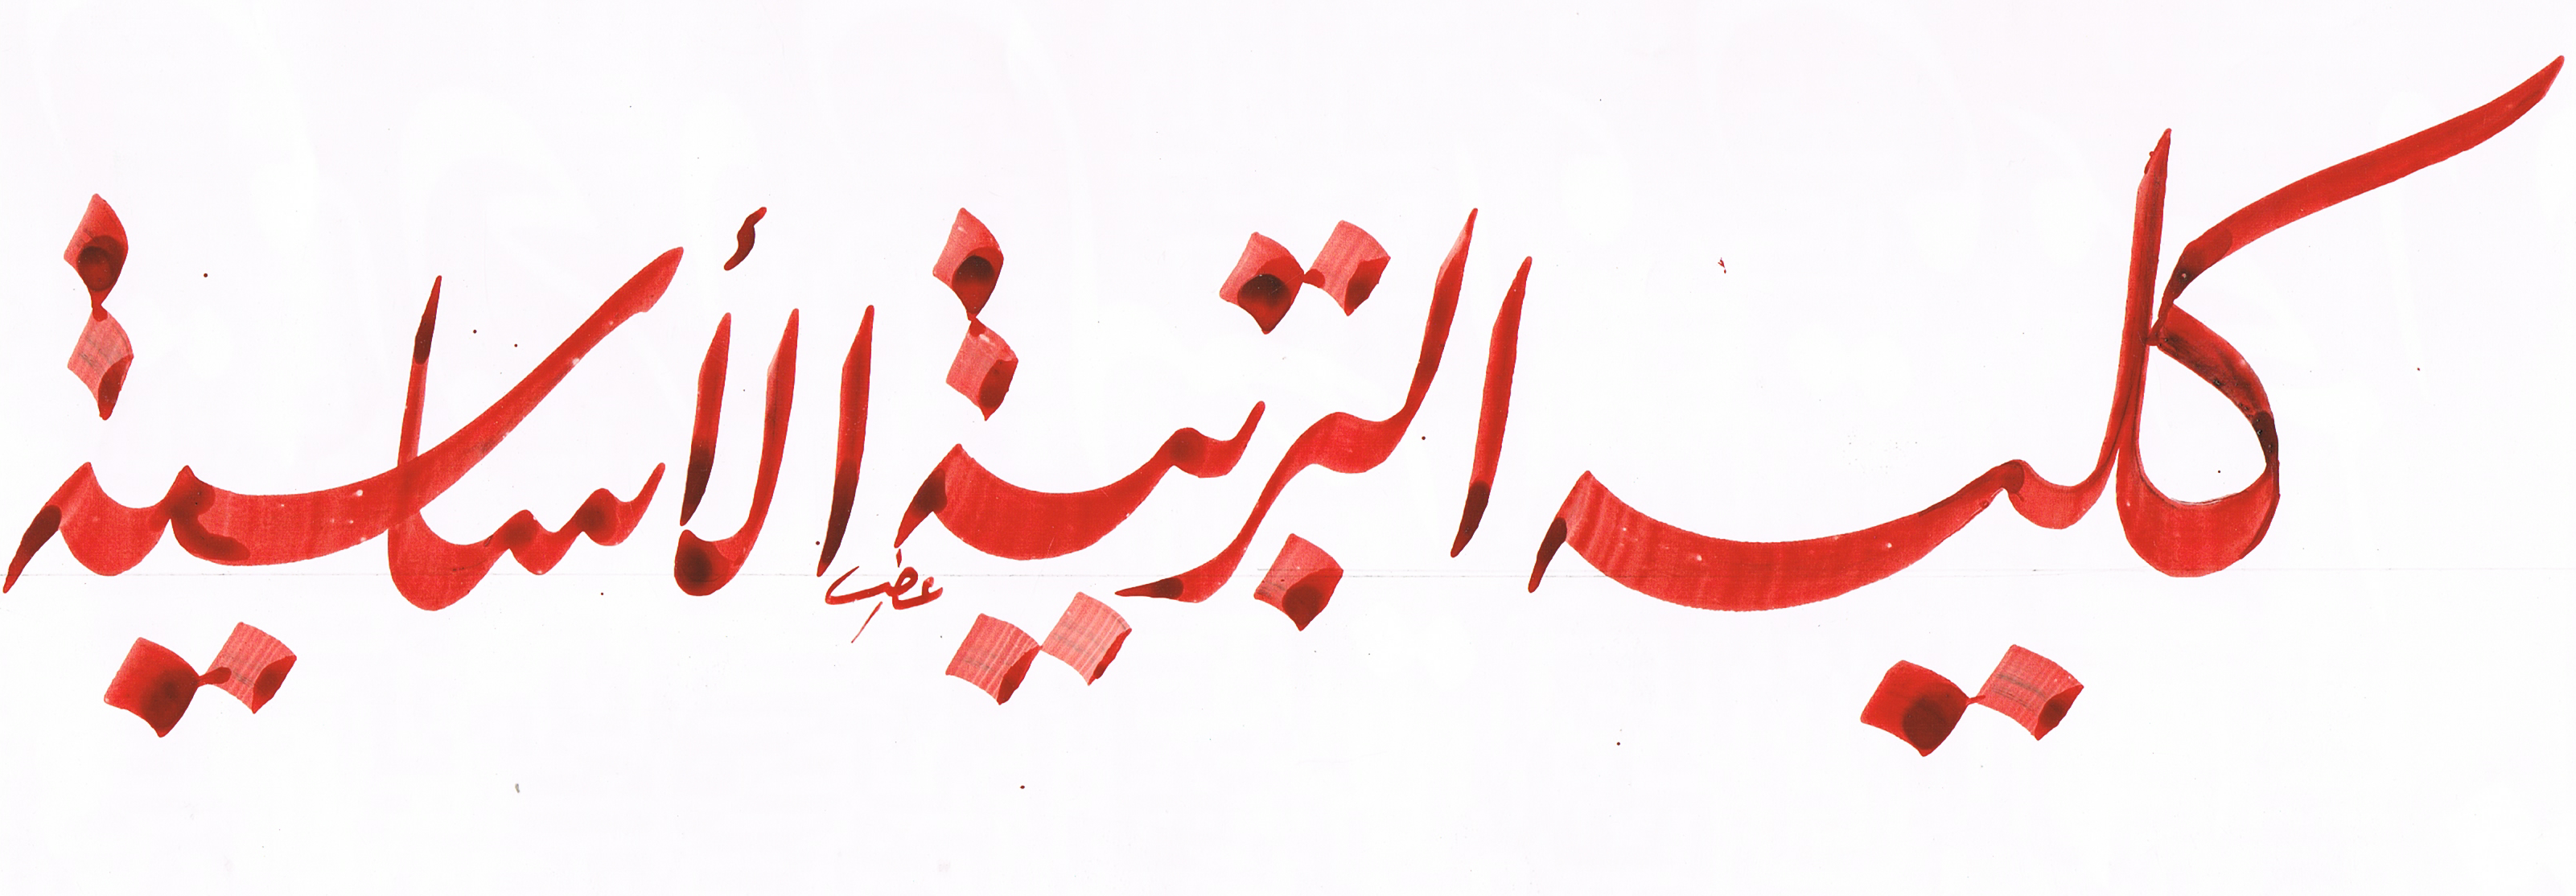 كليه التربية الأساسية